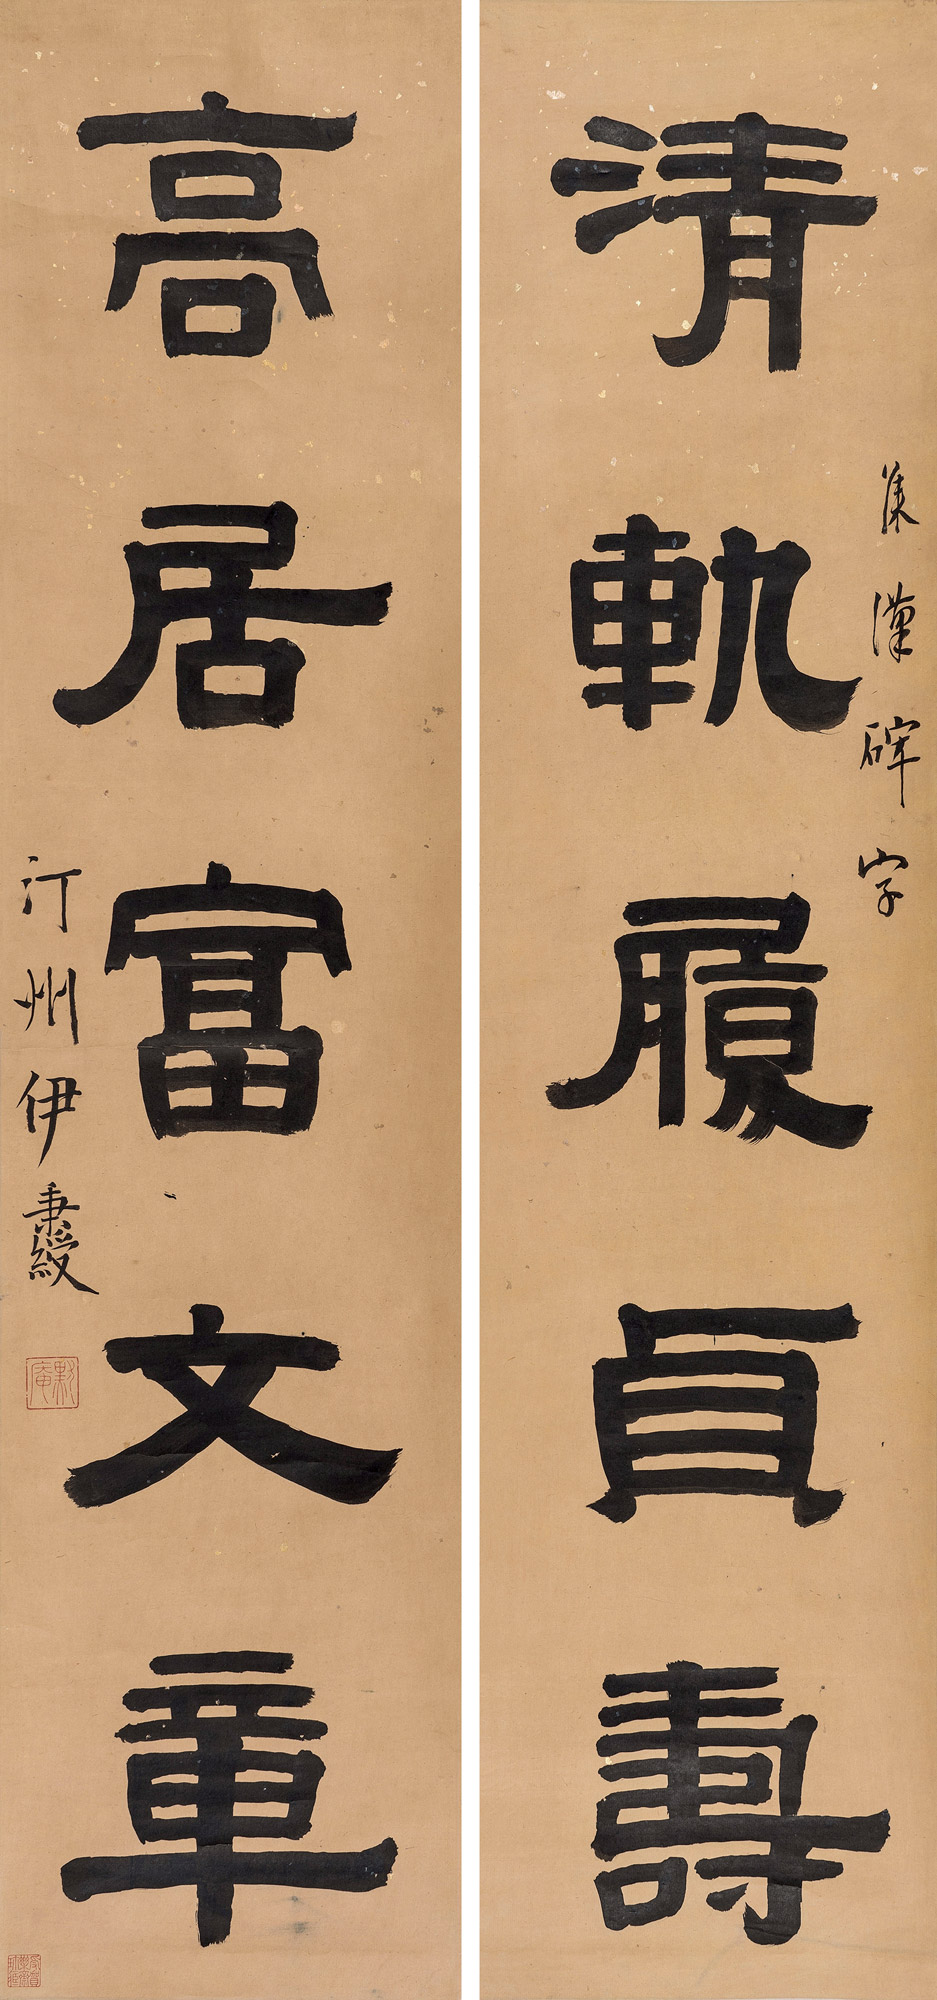 集漢碑字
清軌履貞壽
高居富文章
汀州伊秉綬
默庵